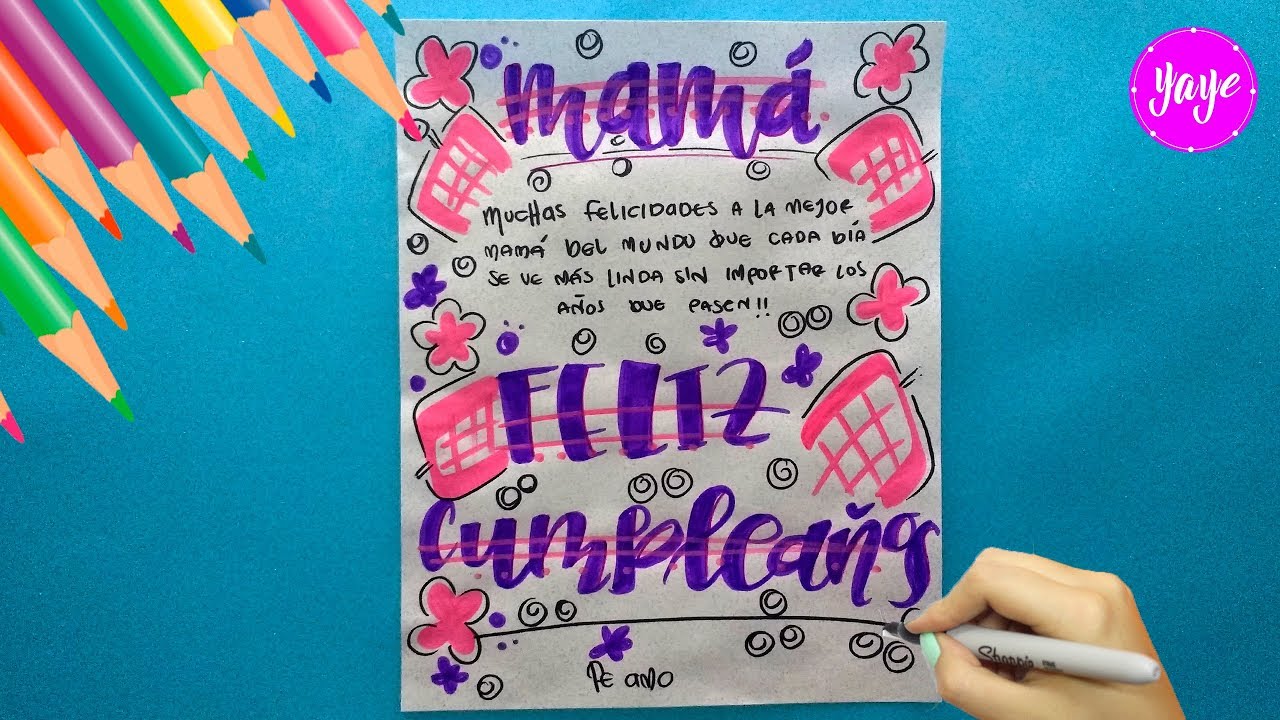 Yaye
mamá
MUCHAS FELICIDADES A LA MEJOR
MAMÁ DEL MUNDO QUE CADA DÍA
SE VE MÁS LINDA SIN IMPORTAR LOS
AÑOS QUE PASEN!!
FELIZ
Cumpleaños
TE AMO
Sharpie